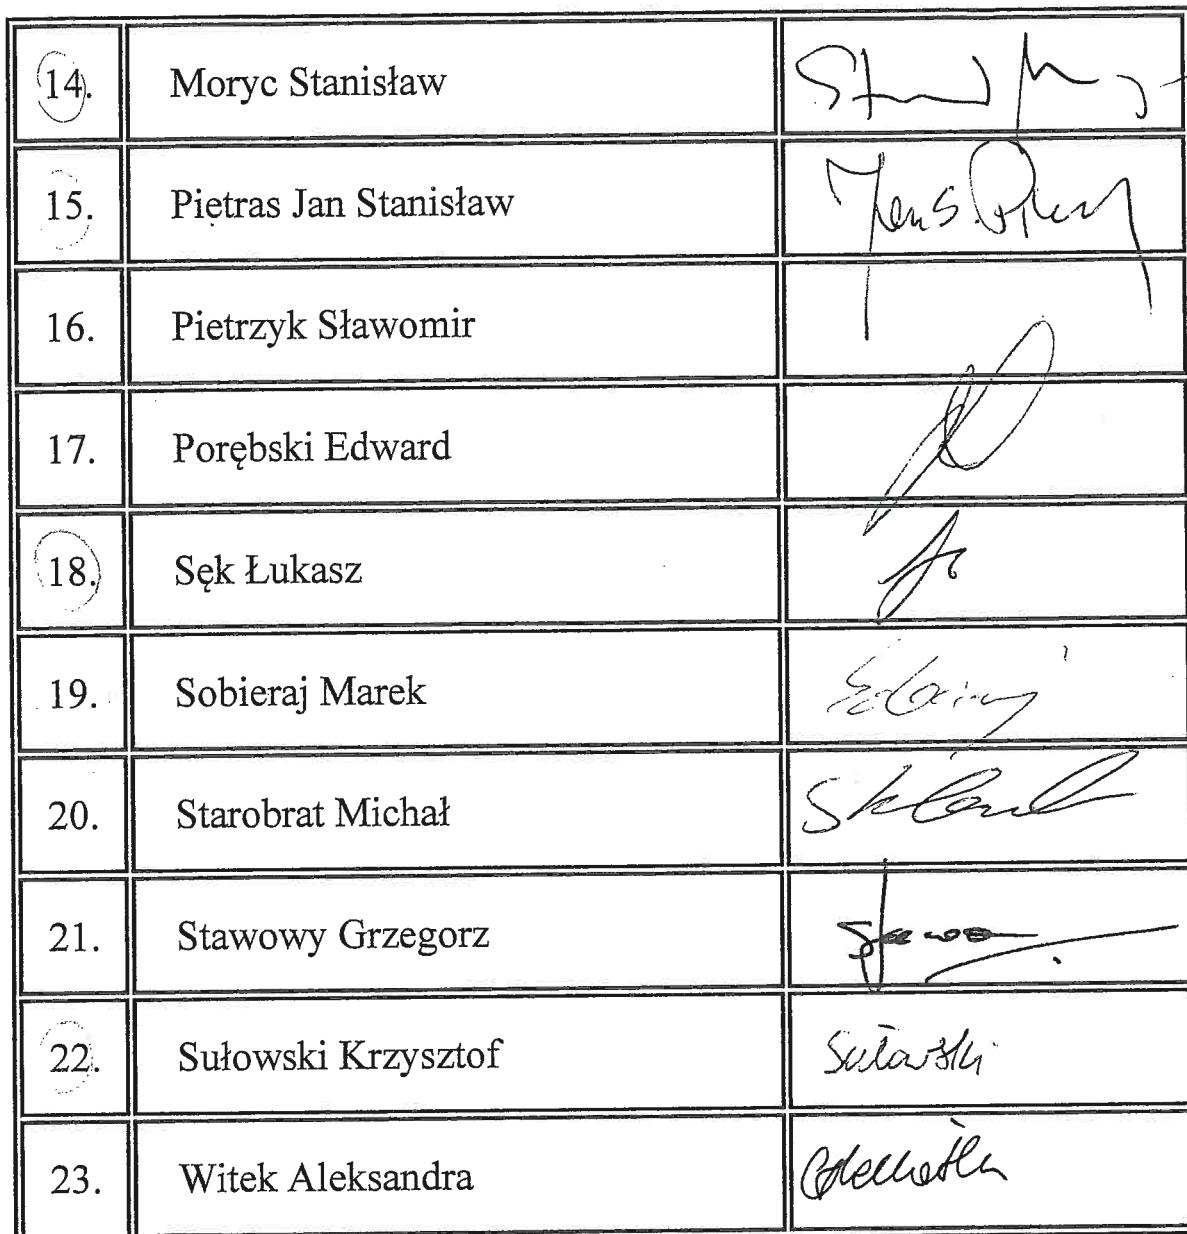 14. Moryc Stanisław
15. Pietras Jan Stanisław
16. Pietrzyk Sławomir
17. Porębski Edward
18. Sęk Łukasz
19. Sobieraj Marek
20. Starobrat Michał
21. Stawowy Grzegorz
22. Sułowski Krzysztof Sułowski
23. Witek Aleksandra